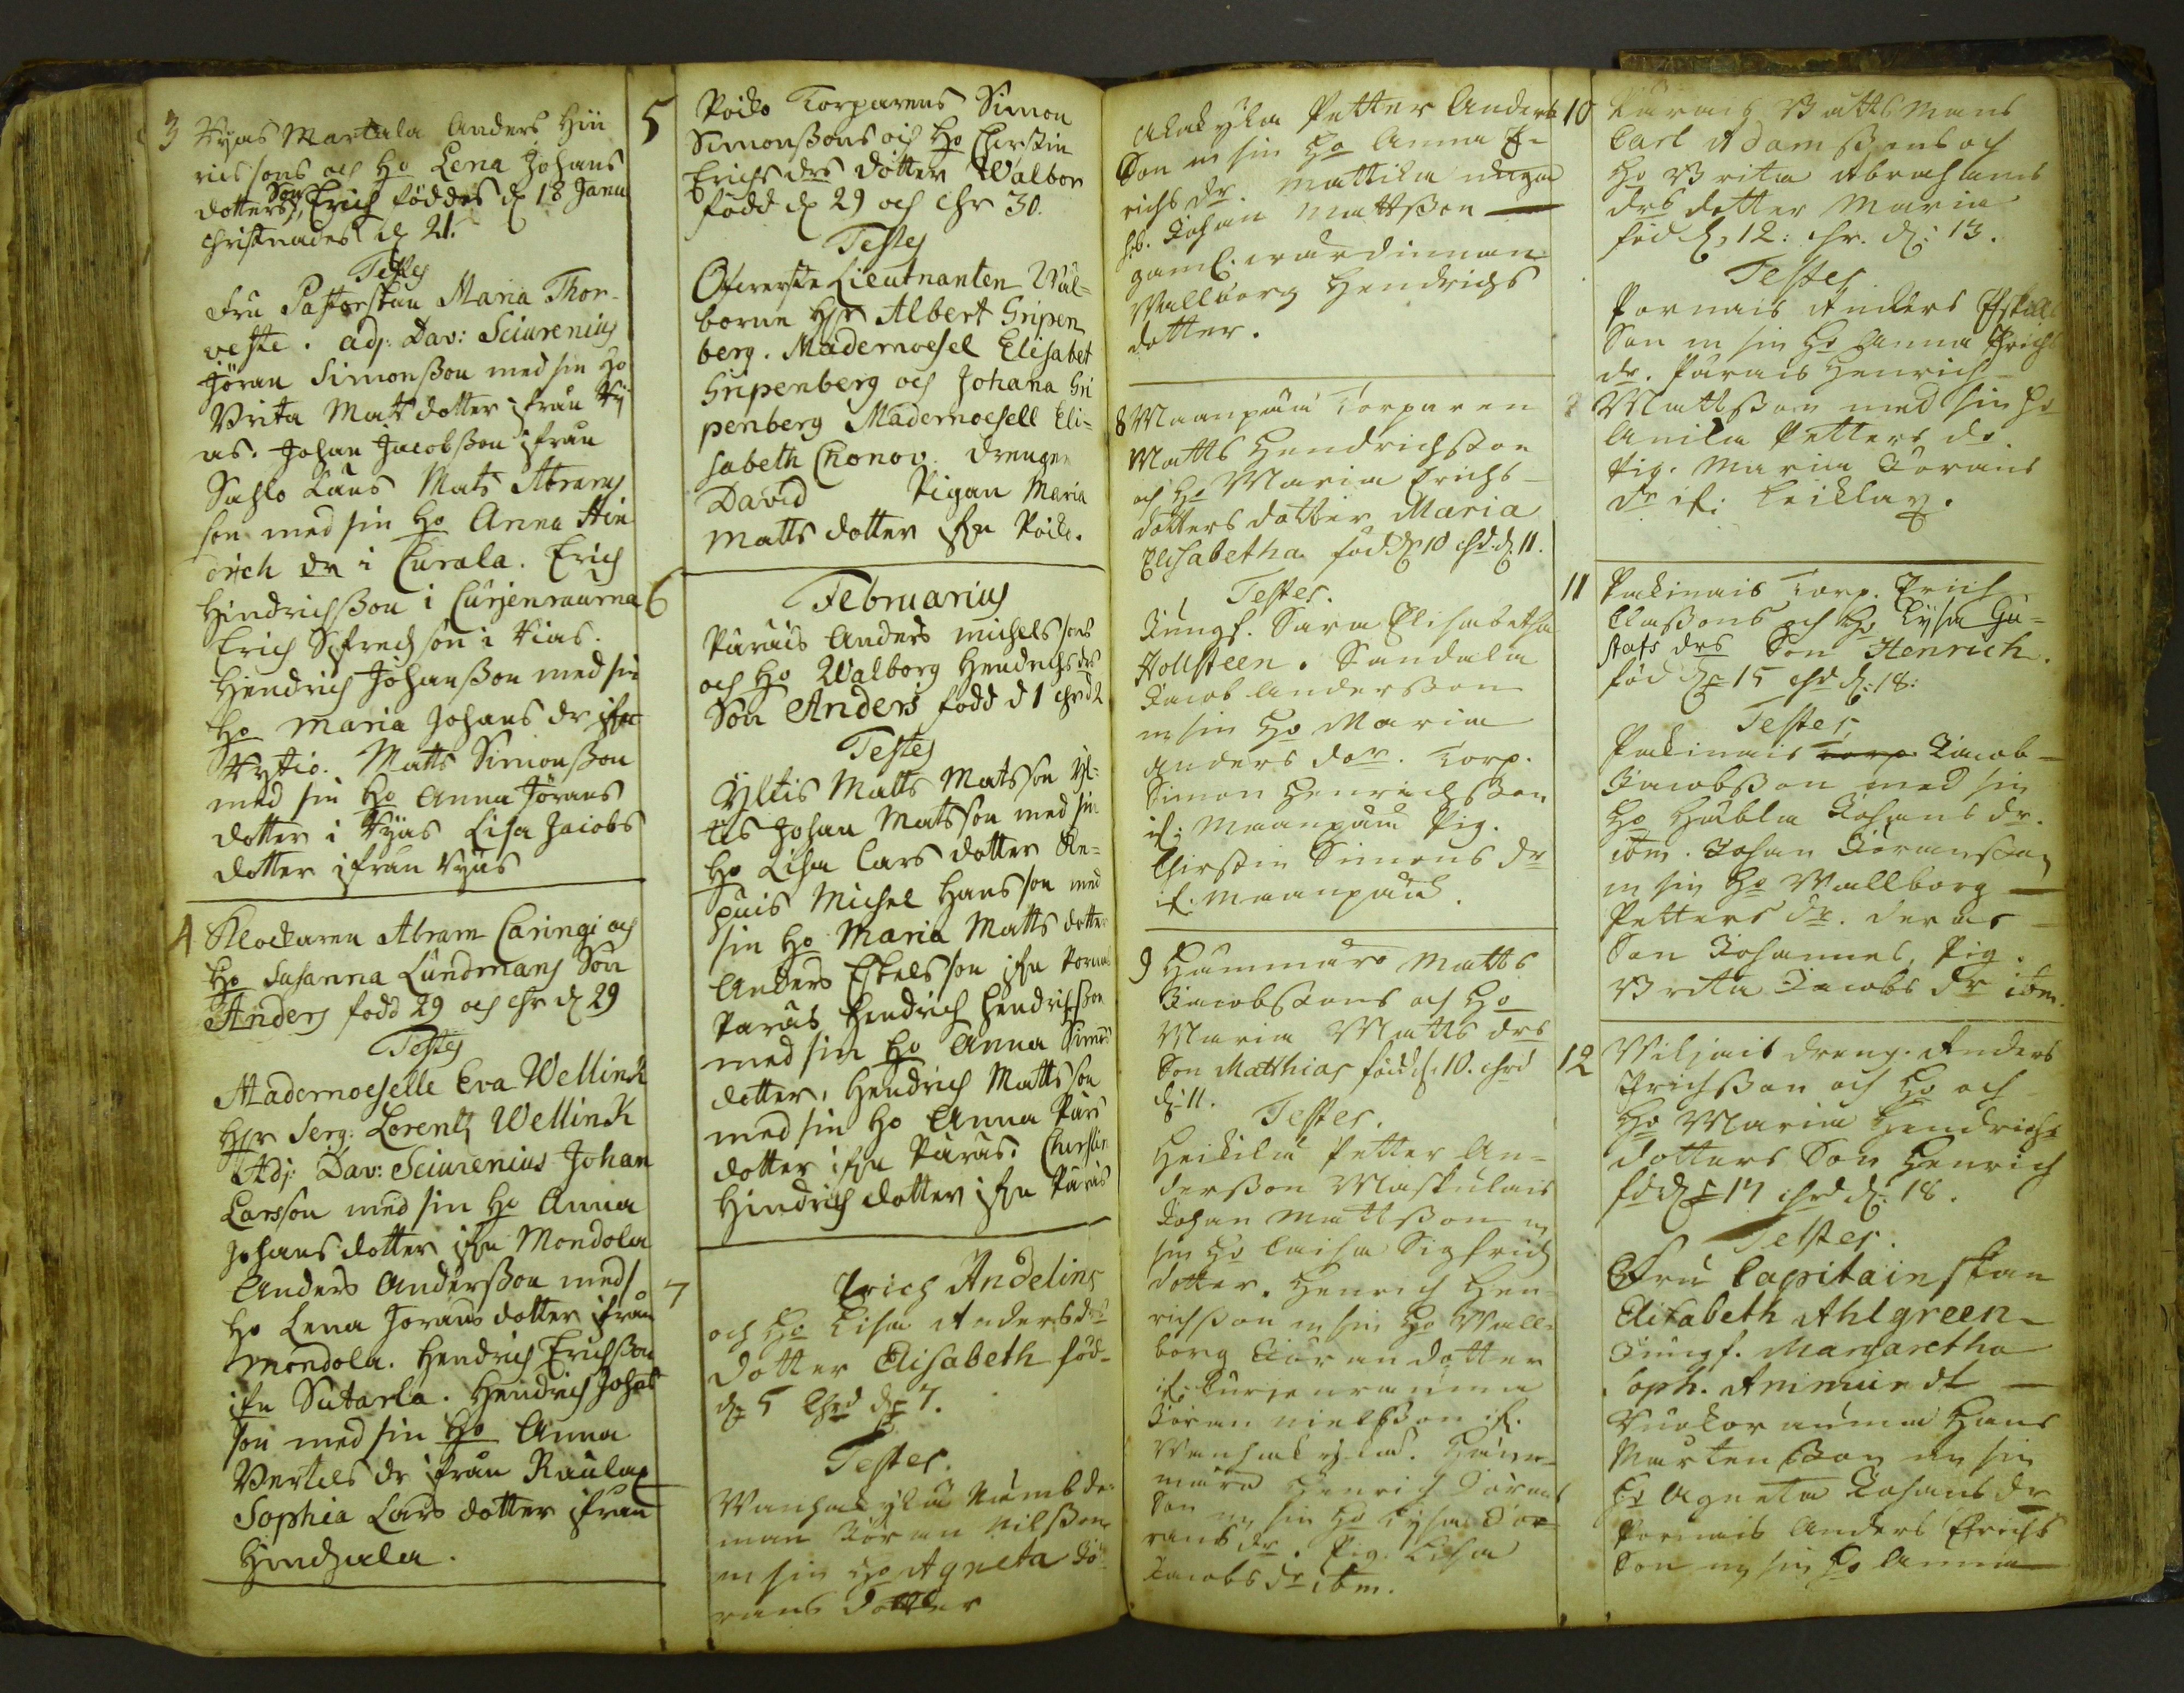 3 Vyas Martala Anders Hin
ricssons och Ho Lena Johans
dotters Son Erich föddes d 18 Janu
christnades d 21.
Testes
Fru Pastorskan Maria Thor-
veste. adj: Dav: Sciurenius
Jöran Simonsson med sin Ho
Vrita Matt dotter ifrån Vy
as. Johan Jacobsson ifrån
Sahlo Laus Mats Abrams
son med sin Ho Anna Hin
drich dr i Curala. Erich
Hindrichsson i Curjenrauma
Erich Sifredson i Vias.
Hendrich Johansson med sin
Ho Maria Johans dr ifr
Matts Simonsson
med sin Ho Anna Jörans
dotter i Vyas Lisa Jacobs
dotter ifrån Vyas
4 Klockaren Abram Caringi och
Ho Susanna Lundmans Son
Anders född 29 och chr d 29
Testes
Mademoeselle Eva Wellink
Hr Serg: Lorentz Wellink
Adj: Dav: Sciurenius Johan
Larsson med sin Ho Anna
Johans dotter ifrn Mondola
Anders Andersson med s
Ho Lena Jorans dotter ifrån
Mondola. Hendrich Erichsson
ifrn Sutarla. Hendrich Johans
son med sin Ho Anna
Bertels dr ifrån Raulax
Sophia Lars dotter ifrån
5 Poiko Torparens Simon
Simonssons och Ho Cherstin
Erichs drs dotter Walbor
född d 29 och chr 30.
Testes
Öfwerste Lieutnanten Wäl-
borne Hr Albert Gripen
berg. Mademoesel Elisabet
Gripenberg och Johana Gri
penberg Mademoesell Eli-
sabeth Chonov. Drengen
David Pigan Maria
Matts dotter ifrn Poiko.
6 Februarius
Parais Anders Michelssons
och Ho Walborg Hendrichs drs
Son Anders född d 1 chrd 2
Testes
Yltis Matts Matsson Yl-
tis Johan Matsson med sin
Ho Lisa Lars dotter Re-
puis Michel Hansson med
sin Ho Maria Matts dotter
Anders Eskelsson ifrn Pornas
Paras Hendrich Hendrichsson
med sin Ho Anna Simns
dotter, Hendrich Mattsson
med sin Ho Anna Pärs
dotter ifrn Paras. Cherstin
Hindrich dotter ifrn Paras
7 Erich Andelins
och Ho Lisa Andersdrs
dotter Elisabeth föd-
d 5 Chrd d 7.
Testes.
Wanhakylä Nämbde-
man Jöran Nilsson
m sin Ho Agneta Jö-
rans dotter
Alakylä Petter Anders
Son m sin Ho Anna E-
richs dr. Mattila unga
hb. Johan Mattsson —
gaml. wärdinnan
Wallborg Hendrichs
dotter.
8 Maanpää Torparen
Matts Hendrichsson
och Ho Maria Erichs-
dotters dotter Maria
Elisabetha född d 10 chd. d 11.
Testes.
Jungf. Sara Elisabetha
Hollsteen. Sandala
Jacob Andersson
m sin Ho Maria
Anders dor. Torp.
Simon Henrichsson
if: Maanpää Pig.
Chirstin Simons dr
if. Maanpää.
9 Hammaro Matts
Jacobssons och Ho
Maria Matts drs
Son Matthias född d. 10. chrd
d: 11.
Testes.
Heikilä Petter An-
dersson Maskulais
Johan Mattsson m
sin Ho Caisa Sigfrids
dotter. Henrich Hen-
richsson m sin Ho Wall-
borg Jöran dotter
if: Kurjenrauma
Jöran Nielsson if.
Wanhakylä. Ham-
maro Henrich Jörans
Son m sin Ho Lysa Jö-
rans dr. Pig. Lisa
Jacobs dr ibm.
10 Parais Battsmans
Carl Adamssons och
Ho Brita Abrahams
drs dotter Maria
föd d 12: chr. d: 13.
Testes
Pornais Anders Eskills
Son m sin Ho Anna Erichs
dr. Parais Henrich
Mattsson med sin Ho
Anna Petters dr.
Pig. Maria Jörans
dr if: Leiklax.
11 Pakinais Torp. Erich
Classons och Ho Lysa Gu-
stafs drs Son Henrich.
föd d 15 chd d: 18:
Testes,
Pakinais Torp Jacob
Jacobsson med sin
Ho Hubla Johans dr.
ibm. Johan Jöransson
m sin Ho Wallborg —
Petters dr. deras
Son Johannes, Pig.
Brita Jacobs dr ibm.
12 Viljais dreng. Anders
Erichsson och Ho och
Ho Maria Hendrichs
dotters Son Henrich
fd d 17 chrd d: 18.
Testes.
Fru Capitainskan
Elisabeth Ahlgreen
Jungf. Margaretha
Soph. Animundt —
Vuokorauma Hans
Mårtensson m sin
Ho Agneta Johans dr
Pornais Anders Erichs
Son m sin Ho Anna